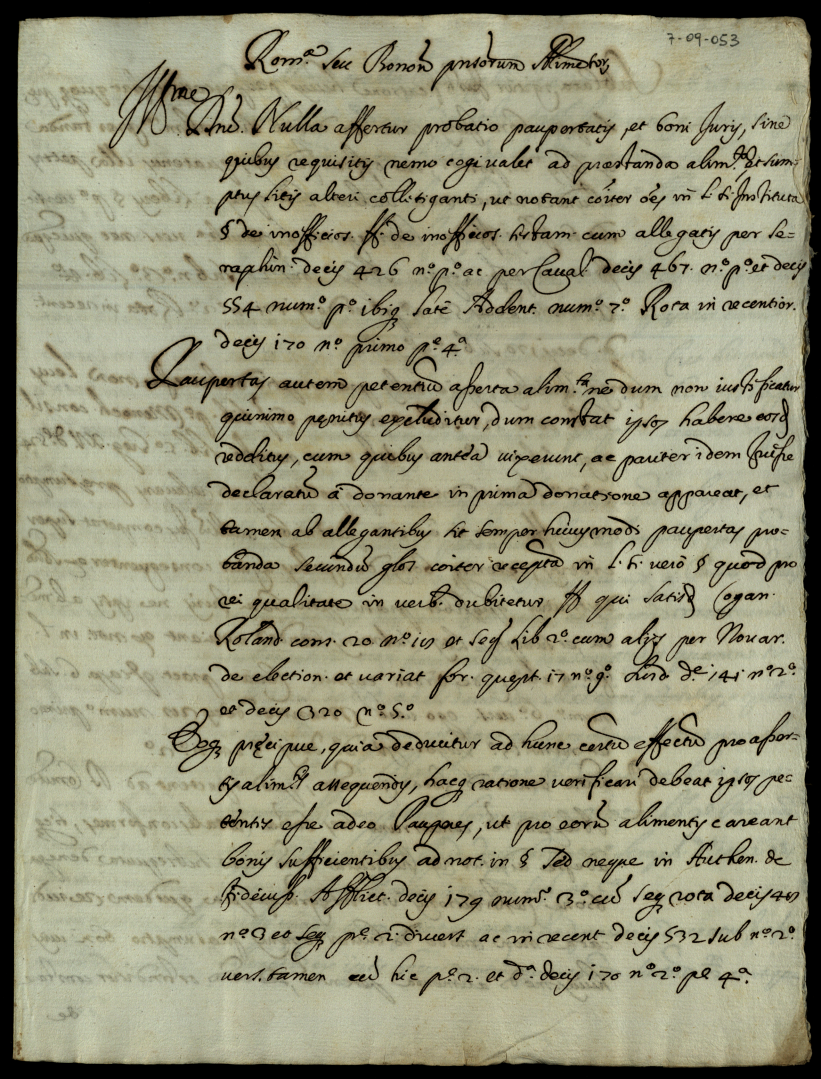 7-09-053
Rom.ª seu Bonoñ pnsorum Alimetor
Illme
Dne. Nulla affertur probatio paupertatis, et boni Juris, sine
quibus requisitis nemo cogi valet ad præstanda alim.ta et sum-
ptus litis alteri collitiganti, ut notant coiter oes in l. si Instituta
§ de inofficios. ff. de inofficios. testam. cum allegatis per Se-
raphin. decis 426 nº pº ac per Caval. decis 467. nº pº et decis
554 numº pº ibiq late Addent. numº 7º Rota in recentior.
decis 170 nº primo pe 4ª
Paupertas autem petentiũ asserta alim.ta nedum non iustificatur
quinimo penitus excluditur, dum constat ipsos habere eosd
redditus, cum quibus antea vixerunt, ac pariter idem fuisse
declaratũ a donante in prima donatione appareat, et
tamen ab allegantibus sit semper huiusmodi paupertas pro-
banda secundũ glos coiter recepta in l. si vero § quod pro
rei qualitate in verb. dubitetur ff qui satisd Cogan.
Roland. cons. 20 nº et seq Lib 2º cum alijs per Novar.
de election. et variat for. quest. 17 nº 9º 141 nº 2º
et decis 320 nº 5º
Eoq precipue, quia deducitur ad hunc certũ effectũ pro asser-
tis alim.tis assequendis, hacq ratione verificari debeat ipsos pe-
tentes esse adeo Pauperes, ut pro eorũ alimentis careant
bonis sufficientibus ad not. in § Sed neque in Authen. de
Afflict. decis 179 num.º 3º cũ seq rota decis
nº 3 et seq pe 2. divers ac in recent decis 532 sub nº 2º
vers. tamen cũ hic pe 2. et dª decis 170 nº 2º pe 4ª